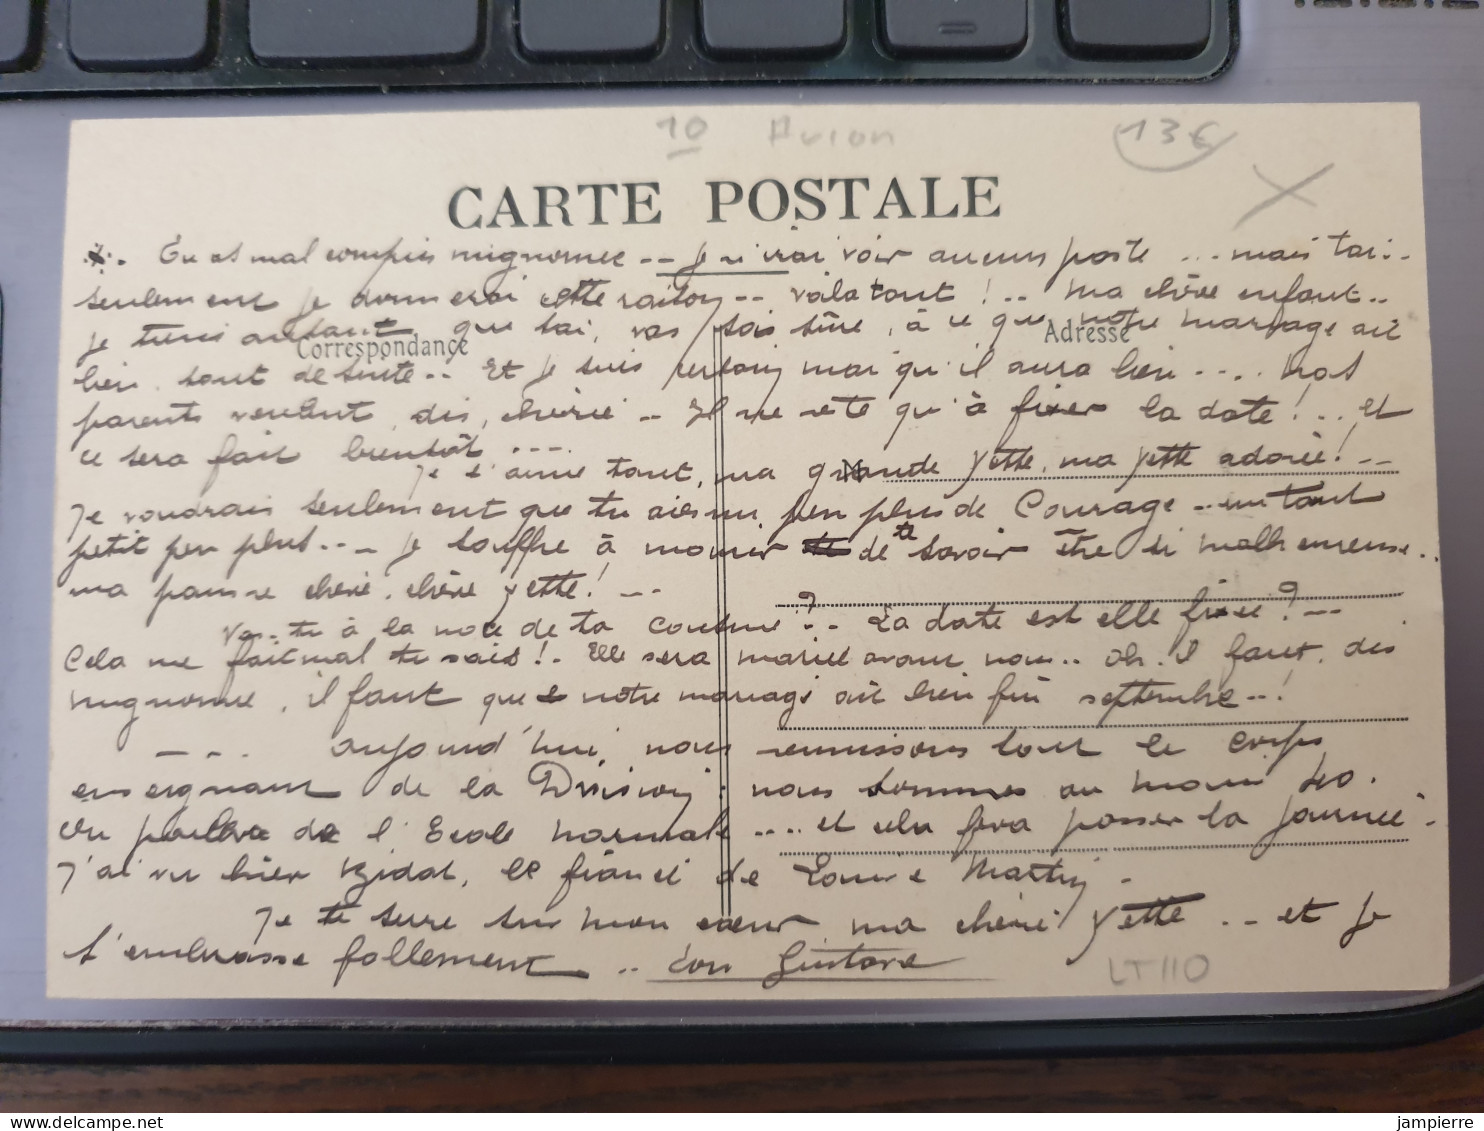 10 Avion 13€
CARTE POSTALE
Tu as mal compris mignonne -- je n'irai voir aucun poste ... mais toi..
seulement je donnerai cette raison -- voilà tout ! .. ma chère enfant..
je tiens autant que toi, vas, sois sûre, à ce que notre mariage ait
Correspondance
Adresse
lieu tout de suite .. Et je suis certain moi qu'il aura lieu .... nos
parents veulent, dis, chérie .. Il ne reste qu'à fixer la date ! .. et
ce sera fait bientôt ...
je t'aime tant, ma grande yette, ma yette adorée ! --
Je voudrais seulement que tu aies un peu plus de courage .. un tout
petit peu plus .. - je souffre à mourir de te savoir être si malheureuse ..
ma pauvre chérie, chère yette ! --
Vas-tu à la noce de ta cousine ? .. La date est elle fixée ? --
Cela me fait mal tu sais ! .. Elle sera mariée avant nous .. oh, il faut, dis
mignonne, il faut que notre mariage ait lieu fin septembre -- !
--- aujourd'hui nous réunissons tout le corps
enseignant de la Division : nous sommes au moins 40.
On parlera de l'Ecole normale .... et cela fera passer la journée -
J'ai vu hier Bidal, le fiancé de Louise Martin -
Je te serre sur mon coeur ma chérie yette .. et je
t'embrasse follement .. ton Gustave
LT110
jampierre